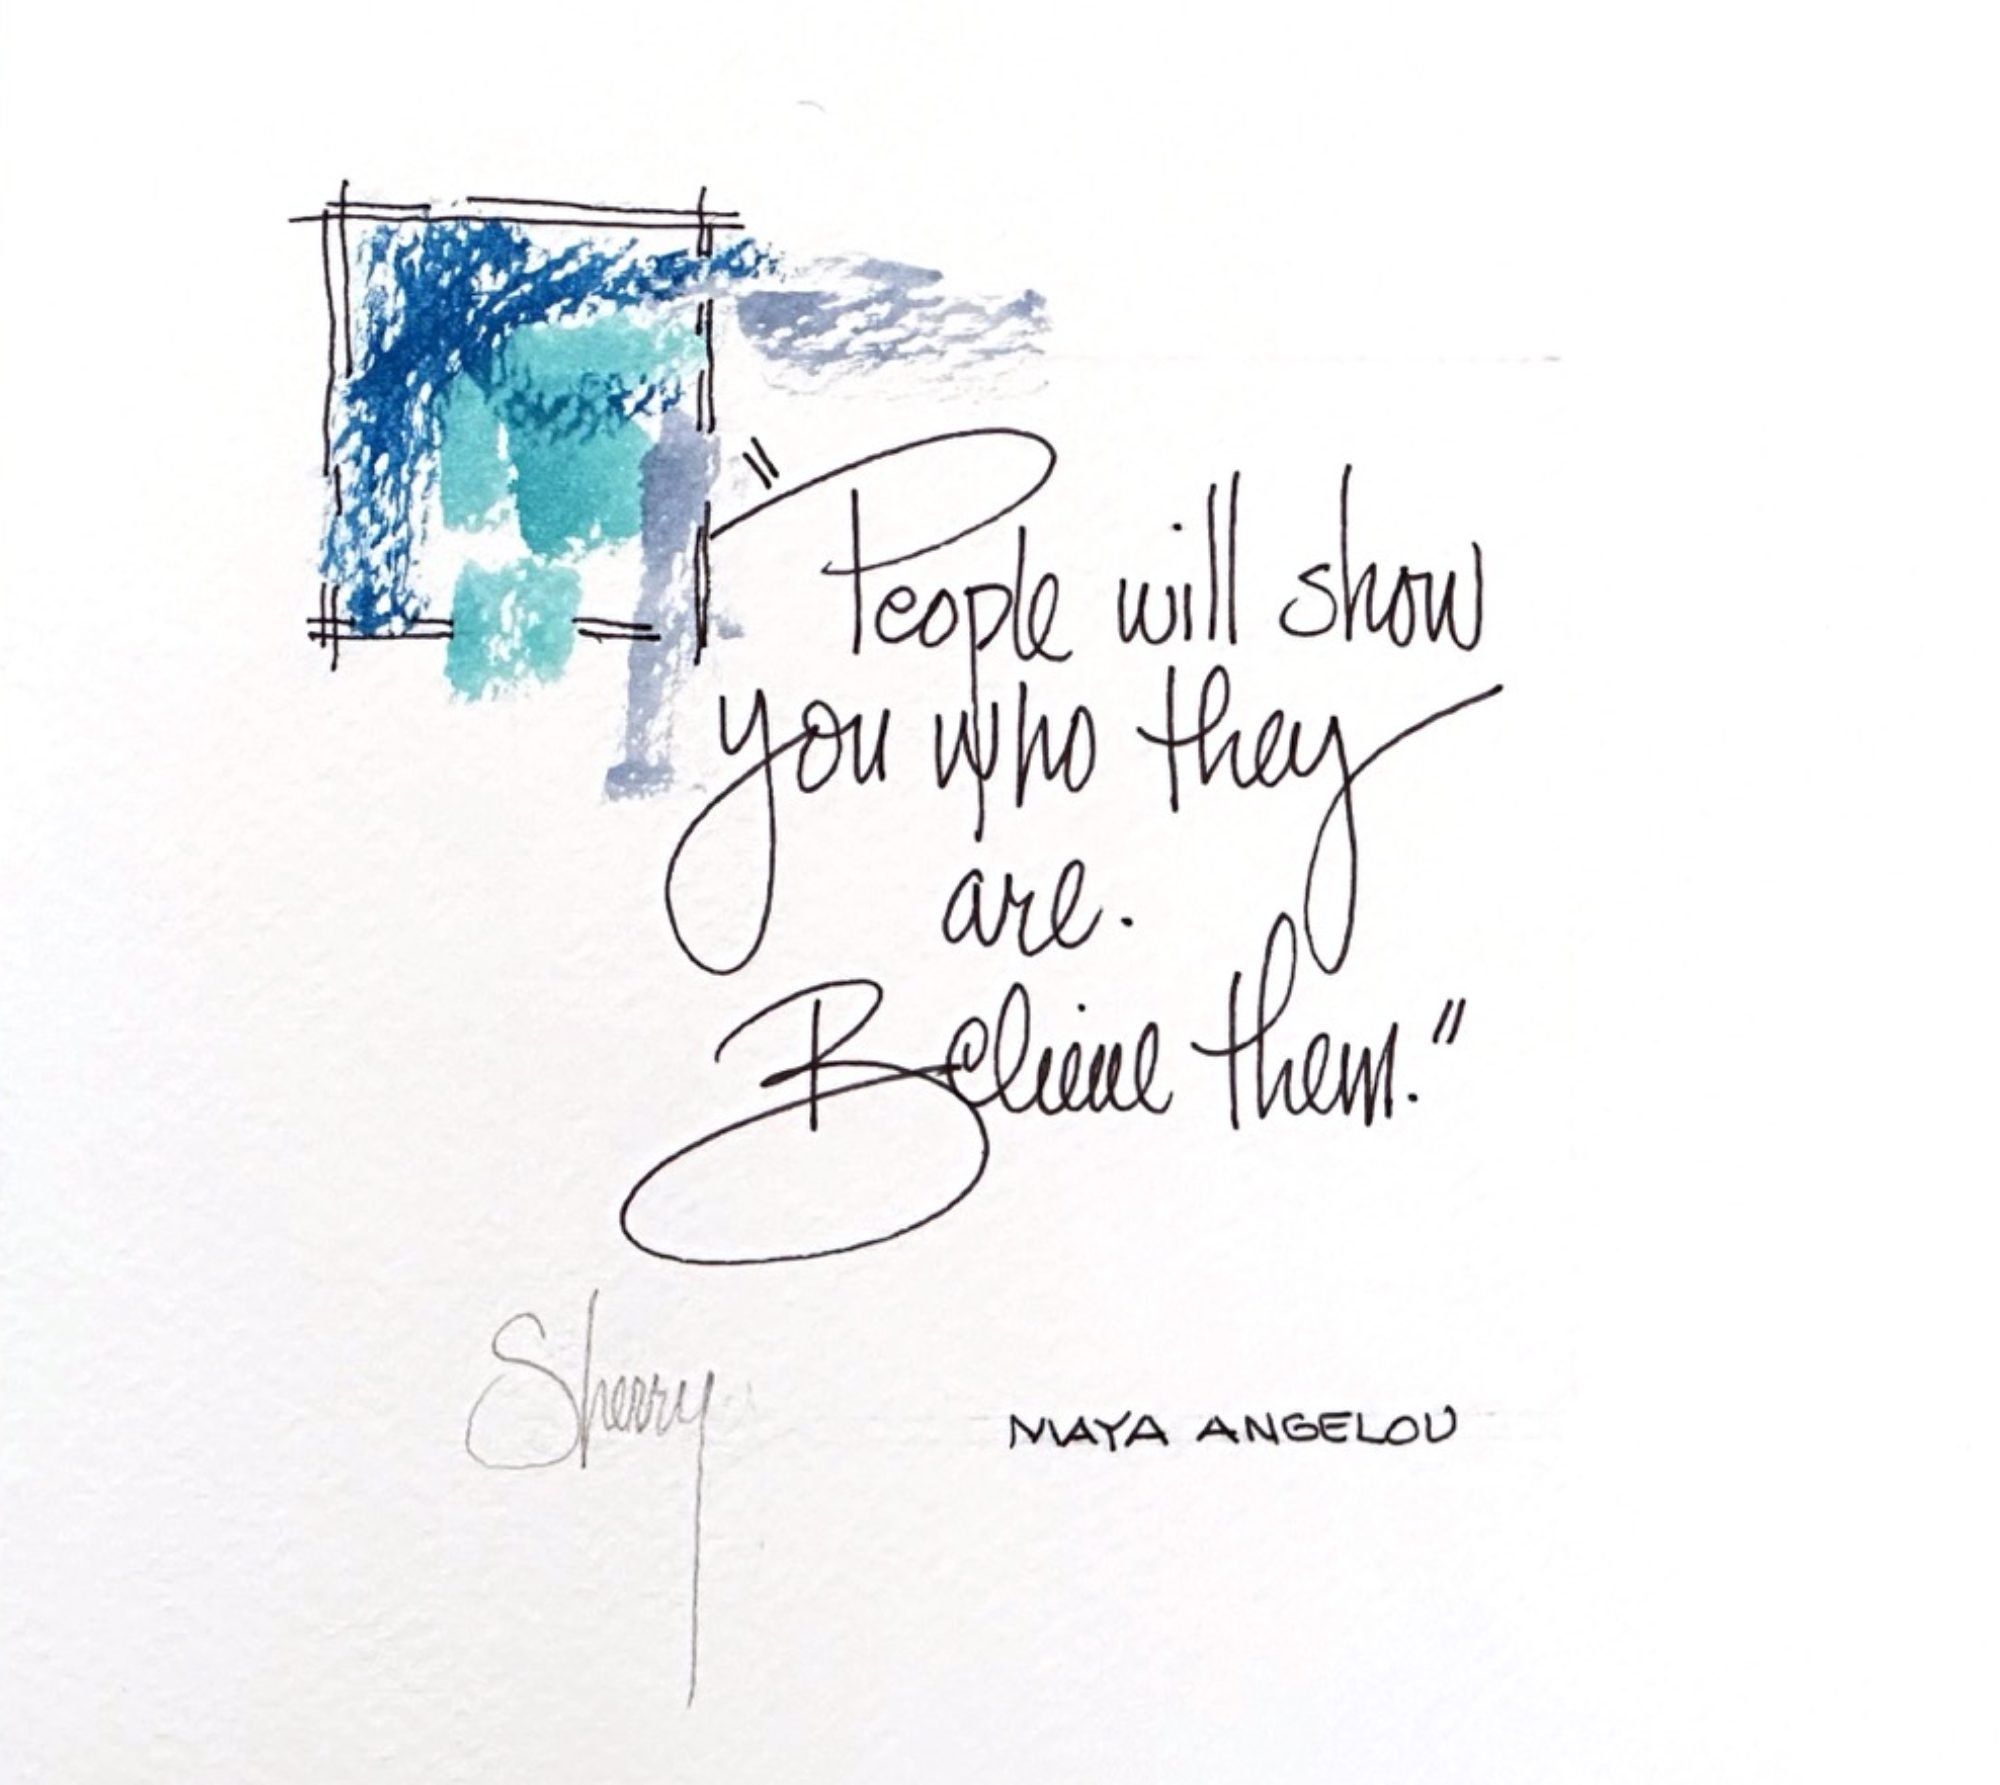 "People will show
you who they
are.
Believe them."
Sherry
MAYA ANGELOU